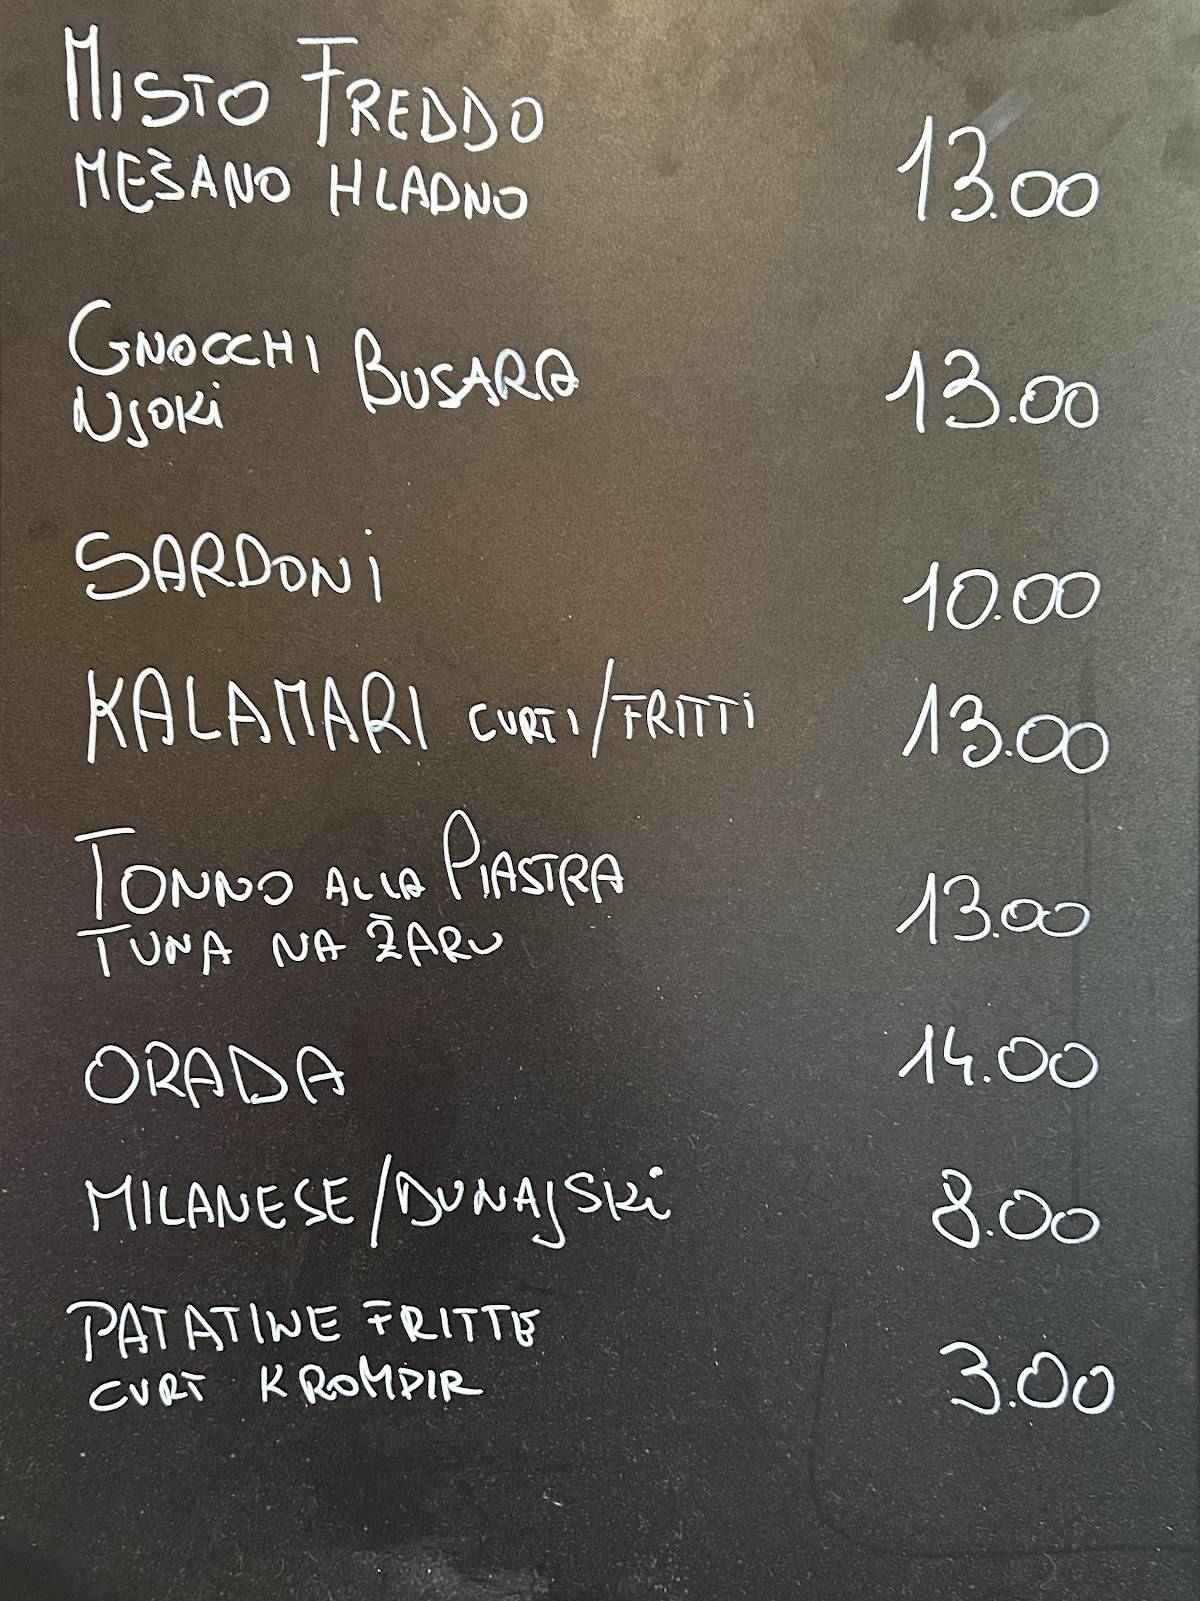 MISTO FREDDO
MEŠANO HLADNO 13.00
GNOCCHI BUSARA 13.00
NJOKI
SARDONI 10.00
KALAMARI CVRTI/FRITTI 13.00
TONNO ALLA PIASTRA 13.00
TUNA NA ŽARU
ORADA 14.00
MILANESE/DUNAJSKI 8.00
PATATINE FRITTE
CVRT KROMPIR 3.00